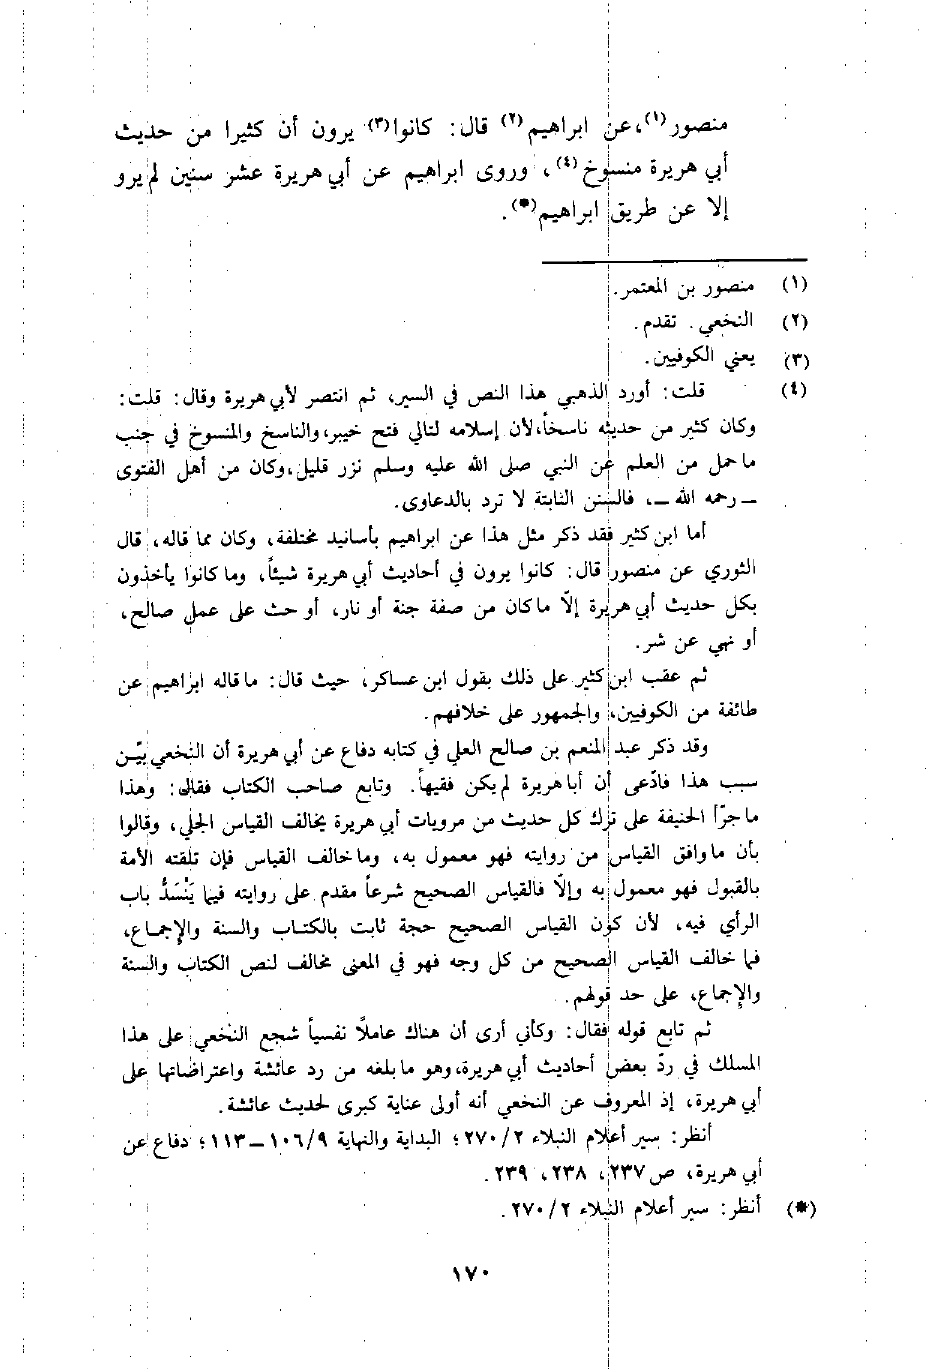 منصور(١)، عن ابراهيم(٢) قال: كانوا(٣) يرون أن كثيرا من حديث
أبي هريرة منسوخ(٤)، وروى ابراهيم عن أبي هريرة عشر سنين لم يرو
إلا عن طريق ابراهيم(*).
(١) منصور بن المعتمر.
(٢) النخعي. تقدم.
(٣) يعني الكوفيين.
(٤) قلت: أورد الذهبي هذا النص في السير، ثم انتصر لأبي هريرة وقال: قلت:
وكان كثير من حديثه ناسخاً، لأن إسلامه لتالي فتح خيبر، والناسخ والمنسوخ في جنب
ما حمل من العلم عن النبي صلى الله عليه وسلم نزر قليل، وكان من أهل الفتوى
ــ رحمه الله ــ، فالسنن الثابتة لا ترد بالدعاوى.
أما ابن كثير فقد ذكر مثل هذا عن ابراهيم بأسانيد مختلفة، وكان مما قاله، قال
الثوري عن منصور قال: كانوا يرون في أحاديث أبي هريرة شيئاً، وما كانوا يأخذون
بكل حديث أبي هريرة إلّا ما كان من صفة جنة أو نار، أو حث على عمل صالح،
أو نهي عن شر.
ثم عقب ابن كثير على ذلك بقول ابن عساكر، حيث قال: ما قاله ابراهيم عن
طائفة من الكوفيين، والجمهور على خلافهم.
وقد ذكر عبد المنعم بن صالح العلي في كتابه دفاع عن أبي هريرة أن النخعي بيّن
سبب هذا فادّعى أن أبا هريرة لم يكن فقيهاً. وتابع صاحب الكتاب فقال: وهذا
ما جرّأ الحنيفة على ترك كل حديث من مرويات أبي هريرة يخالف القياس الجلي، وقالوا
بأن ما وافق القياس من روايته فهو معمول به، وما خالف القياس فإن تلقته الأمة
بالقبول فهو معمول به وإلّا فالقياس الصحيح شرعاً مقدم على روايته فيما يَنْسَدُّ باب
الرأي فيه، لأن كون القياس الصحيح حجة ثابت بالكتاب والسنة والإجماع،
فما خالف القياس الصحيح من كل وجه فهو في المعنى مخالف لنص الكتاب والسنة
والإجماع، على حد قولهم.
ثم تابع قوله فقال: وكأني أرى أن هناك عاملاً نفسياً شجع النخعي على هذا
المسلك في ردّ بعض أحاديث أبي هريرة، وهو ما بلغه من رد عائشة واعتراضاتها على
أبي هريرة، إذ المعروف عن النخعي أنه أولى عناية كبرى لحديث عائشة.
أنظر: سير أعلام النبلاء ٢/ ٢٧٠؛ البداية والنهاية ٩/ ١٠٦ــ١١٣؛ دفاع عن
أبي هريرة، ص ٢٣٧، ٢٣٨، ٢٣٩.
(*) أنظر: سير أعلام النبلاء ٢/ ٢٧٠.
١٧٠